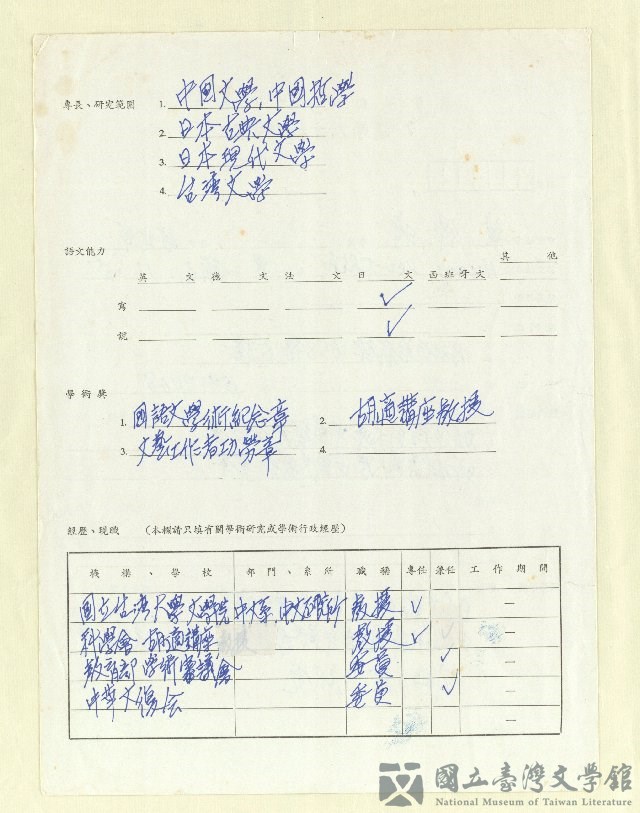 專長、研究範圍 1. 中国文學，中国哲學
2. 日本古典文學
3. 日本現代文學
4. 台灣文學
語文能力
英文 德文 法文 日文 西班牙文 其他
寫 ✓
說 ✓
學術獎
1. 國語文學術紀念章 2. 胡適講座教授
3. 文藝工作者功勞章 4.
經歷、現職 （本欄請只填有關學術研究或學術行政經歷）
機構、學校 部門、系所 職稱 專任 兼任 工作期間
國立台灣大學文學院 中文系，中文研究所 教授 ✓ —
科學會 胡適講座 教授 ✓ —
教育部 學術審議會 委員 ✓ —
中華文復会 委員 ✓ —
—
國立臺灣文學館
National Museum of Taiwan Literature